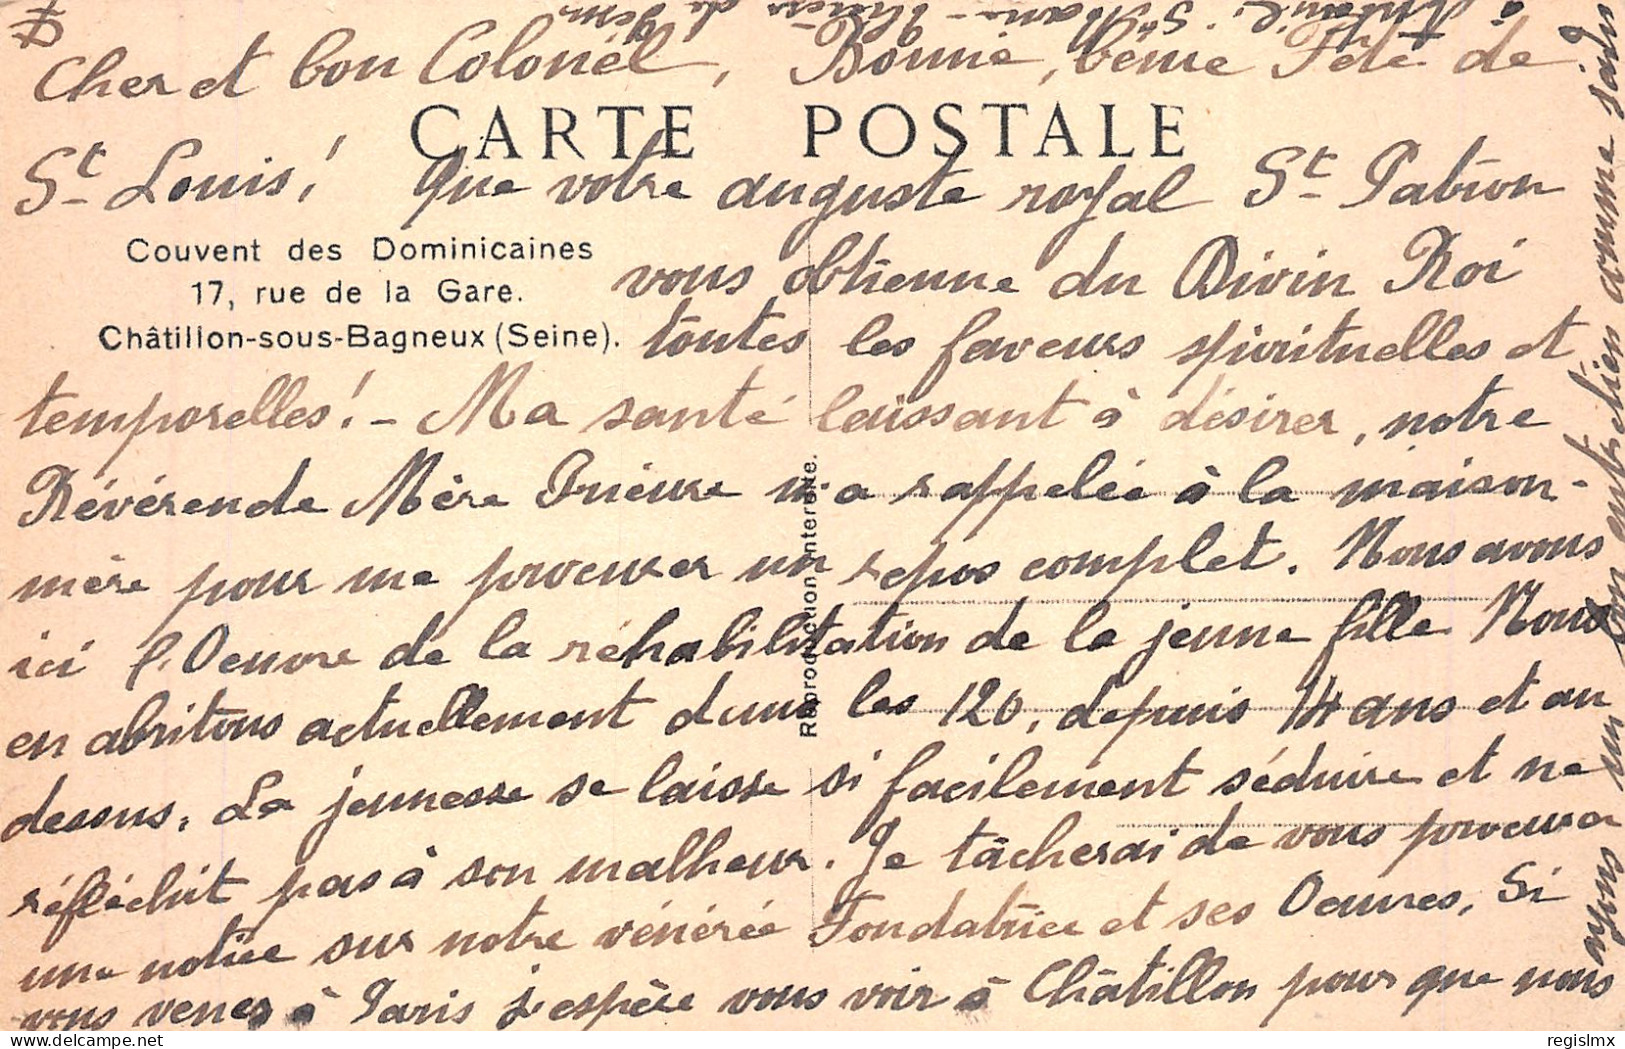 Cher et bon Colonel, Bonne, bénie Fête de
CARTE POSTALE
St Louis! Que votre auguste royal St Patron
Couvent des Dominicaines
17, rue de la Gare.
Châtillon-sous-Bagneux (Seine).
vous obtienne du Divin Roi
toutes les faveurs spirituelles et
temporelles! - Ma santé laissant à désirer, notre
Révérende Mère Prieure m'a rappelée à la maison-
mère pour me procurer un repos complet. Nous avons
ici l'Oeuvre de la réhabilitation de la jeune fille. Nous
en abritons actuellement dans les 120, depuis 14 ans et au
dessus. La jeunesse se laisse si facilement séduire et ne
réfléchit pas à son malheur. Je tâcherai de vous procurer
une notice sur notre vénérée Fondatrice et ses Oeuvres. Si
vous venez à Paris j'espère vous voir à Châtillon pour que nous
ayons un bon entretien comme jadis
à St Marie
Reproduction interdite.
regislmx
delcampe.net